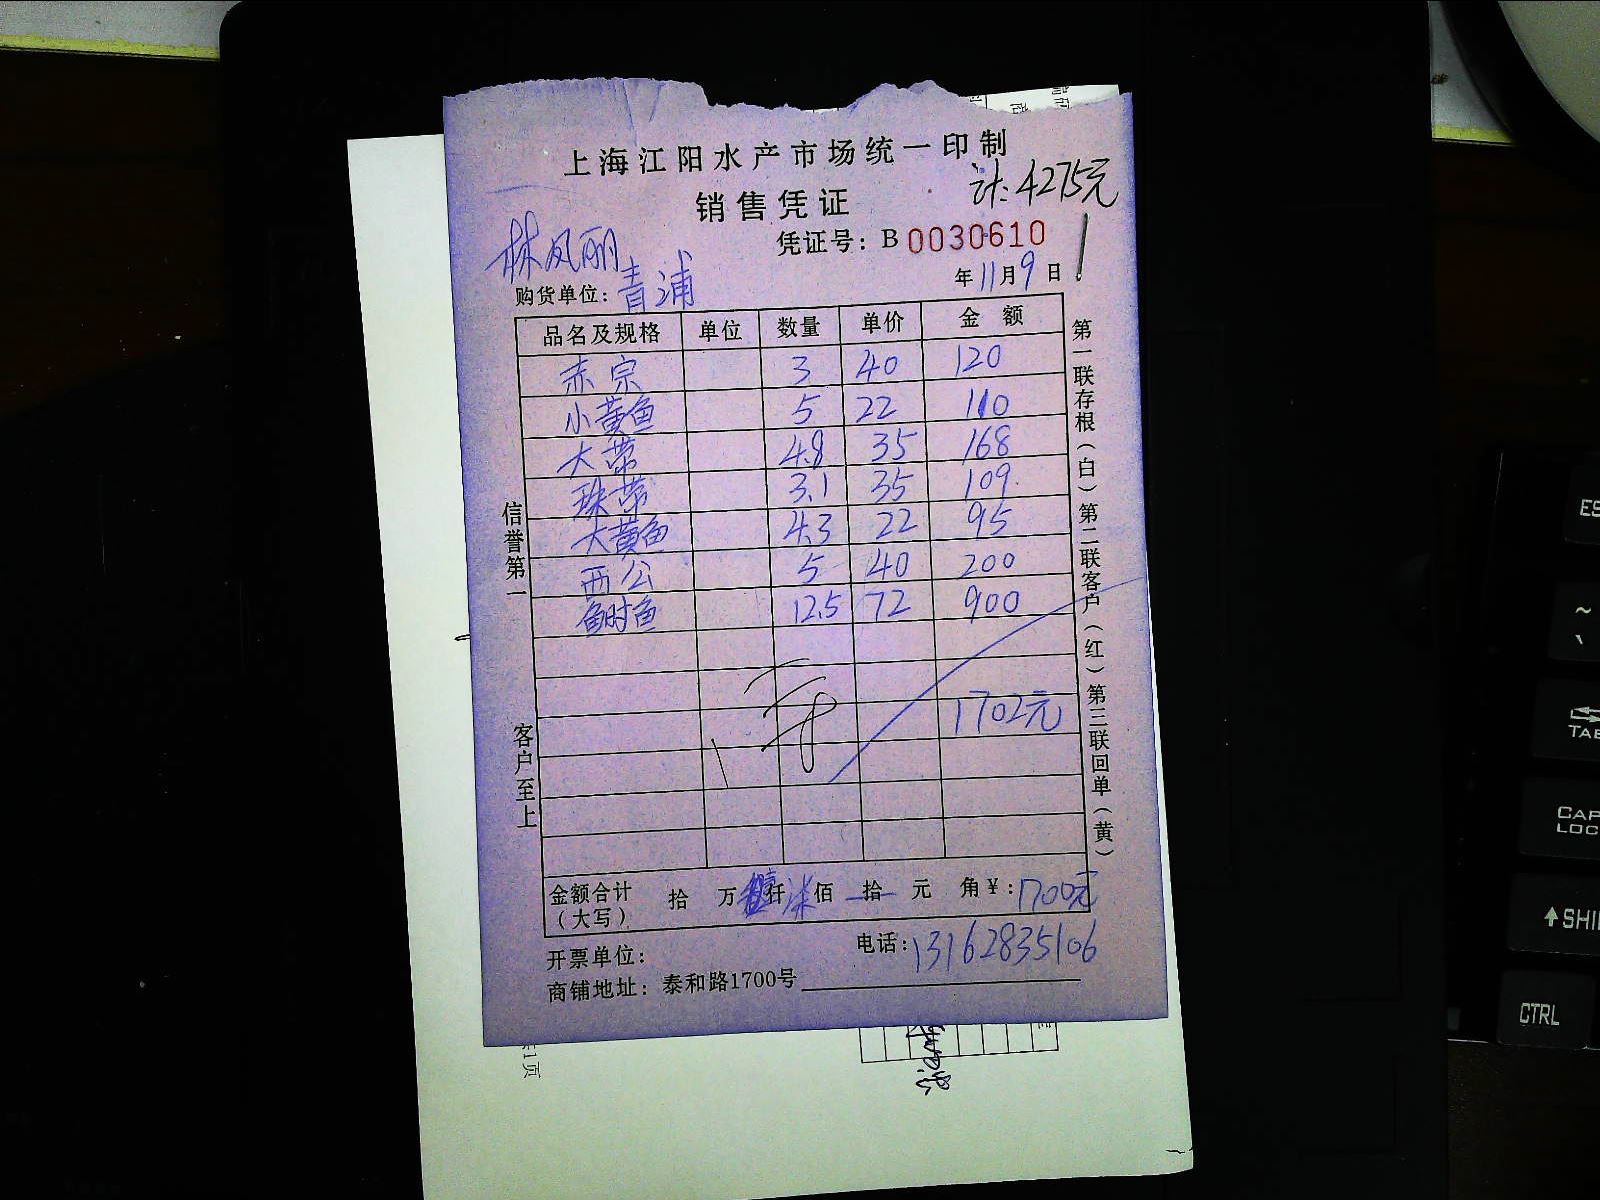 上海江阳水产市场统一印制
计:4275元
销售凭证
凭证号: B 0030610
林凤丽
年11月9日
购货单位: 青浦
品名及规格 单位 数量 单价 金额
赤宗 3 40 120
小黄鱼 5 22 110
大带 4.8 35 168
珠带 3.1 35 109
大黄鱼 4.3 22 95
西公 5 40 200
鲥鱼 12.5 72 900
1702元
金额合计(大写) 拾 万 壹仟 柒佰 拾 元 角 ¥: 1700元
开票单位: 电话: 13162835106
商铺地址: 泰和路1700号
信誉第一
客户至上
第一联存根(白)第二联客户(红)第三联回单(黄)
ESC
~
TAB
CAPS
LOCK
SHI
CTRL